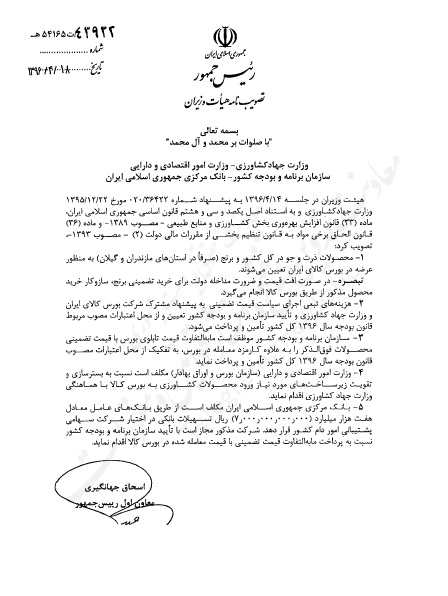 ۴۳۹۲۲/ت۵۴۱۶۵هـ
شماره
۱۳۹۶/۰۴/۱۸
تاریخ
جمهوری اسلامی ایران
رئیس جمهور
تصویب نامه هیأت وزیران
بسمه تعالی
"با صلوات بر محمد و آل محمد"
وزارت جهادکشاورزی- وزارت امور اقتصادی و دارایی
سازمان برنامه و بودجه کشور- بانک مرکزی جمهوری اسلامی ایران
هیئت وزیران در جلسه ۱۳۹۶/۴/۱۴ به پیشنهاد شماره ۰۲۰/۳۶۴۲۲ مورخ ۱۳۹۵/۱۲/۲۲
وزارت جهادکشاورزی و به استناد اصل یکصد و سی و هشتم قانون اساسی جمهوری اسلامی ایران،
ماده (۳۳) قانون افزایش بهره‌وری بخش کشاورزی و منابع طبیعی - مصوب ۱۳۸۹- و ماده (۳۶)
قانون الحاق برخی مواد به قانون تنظیم بخشی از مقررات مالی دولت (۲) - مصوب ۱۳۹۳-
تصویب کرد:
۱- محصولات ذرت و جو در کل کشور و برنج (صرفاً در استان‌های مازندران و گیلان) به منظور
عرضه در بورس کالای ایران تعیین می‌شوند.
تبصره- در صورت افت قیمت و ضرورت مداخله دولت برای خرید تضمینی برنج، سازوکار خرید
محصول مذکور از طریق بورس کالا انجام می‌گیرد.
۲- هزینه‌های تبعی اجرای سیاست قیمت تضمینی به پیشنهاد مشترک شرکت بورس کالای ایران
و وزارت جهاد کشاورزی و تأیید سازمان برنامه و بودجه کشور تعیین و از محل اعتبارات مصوب مربوط
قانون بودجه سال ۱۳۹۶ کل کشور تأمین و پرداخت می‌شود.
۳- سازمان برنامه و بودجه کشور موظف است مابه‌التفاوت قیمت تابلوی بورس با قیمت تضمینی
محصولات فوق‌الذکر را به علاوه کارمزد معامله در بورس، به تفکیک از محل اعتبارات مصوب
قانون بودجه سال ۱۳۹۶ کل کشور تأمین و پرداخت نماید.
۴- وزارت امور اقتصادی و دارایی (سازمان بورس و اوراق بهادار) مکلف است نسبت به بسترسازی و
تقویت زیرساخت‌های مورد نیاز ورود محصولات کشاورزی به بورس کالا با هماهنگی
وزارت جهاد کشاورزی اقدام نماید.
۵- بانک مرکزی جمهوری اسلامی ایران مکلف است از طریق بانک‌های عامل معادل
هفت هزار میلیارد (۷٫۰۰۰٫۰۰۰٫۰۰۰٫۰۰۰) ریال تسهیلات بانکی در اختیار شرکت سهامی
پشتیبانی امور دام کشور قرار دهد. شرکت مذکور مجاز است با تأیید سازمان برنامه و بودجه کشور
نسبت به پرداخت مابه‌التفاوت قیمت تضمینی با قیمت معامله شده در بورس کالا اقدام نماید.
اسحاق جهانگیری
معاون اول رییس‌جمهور